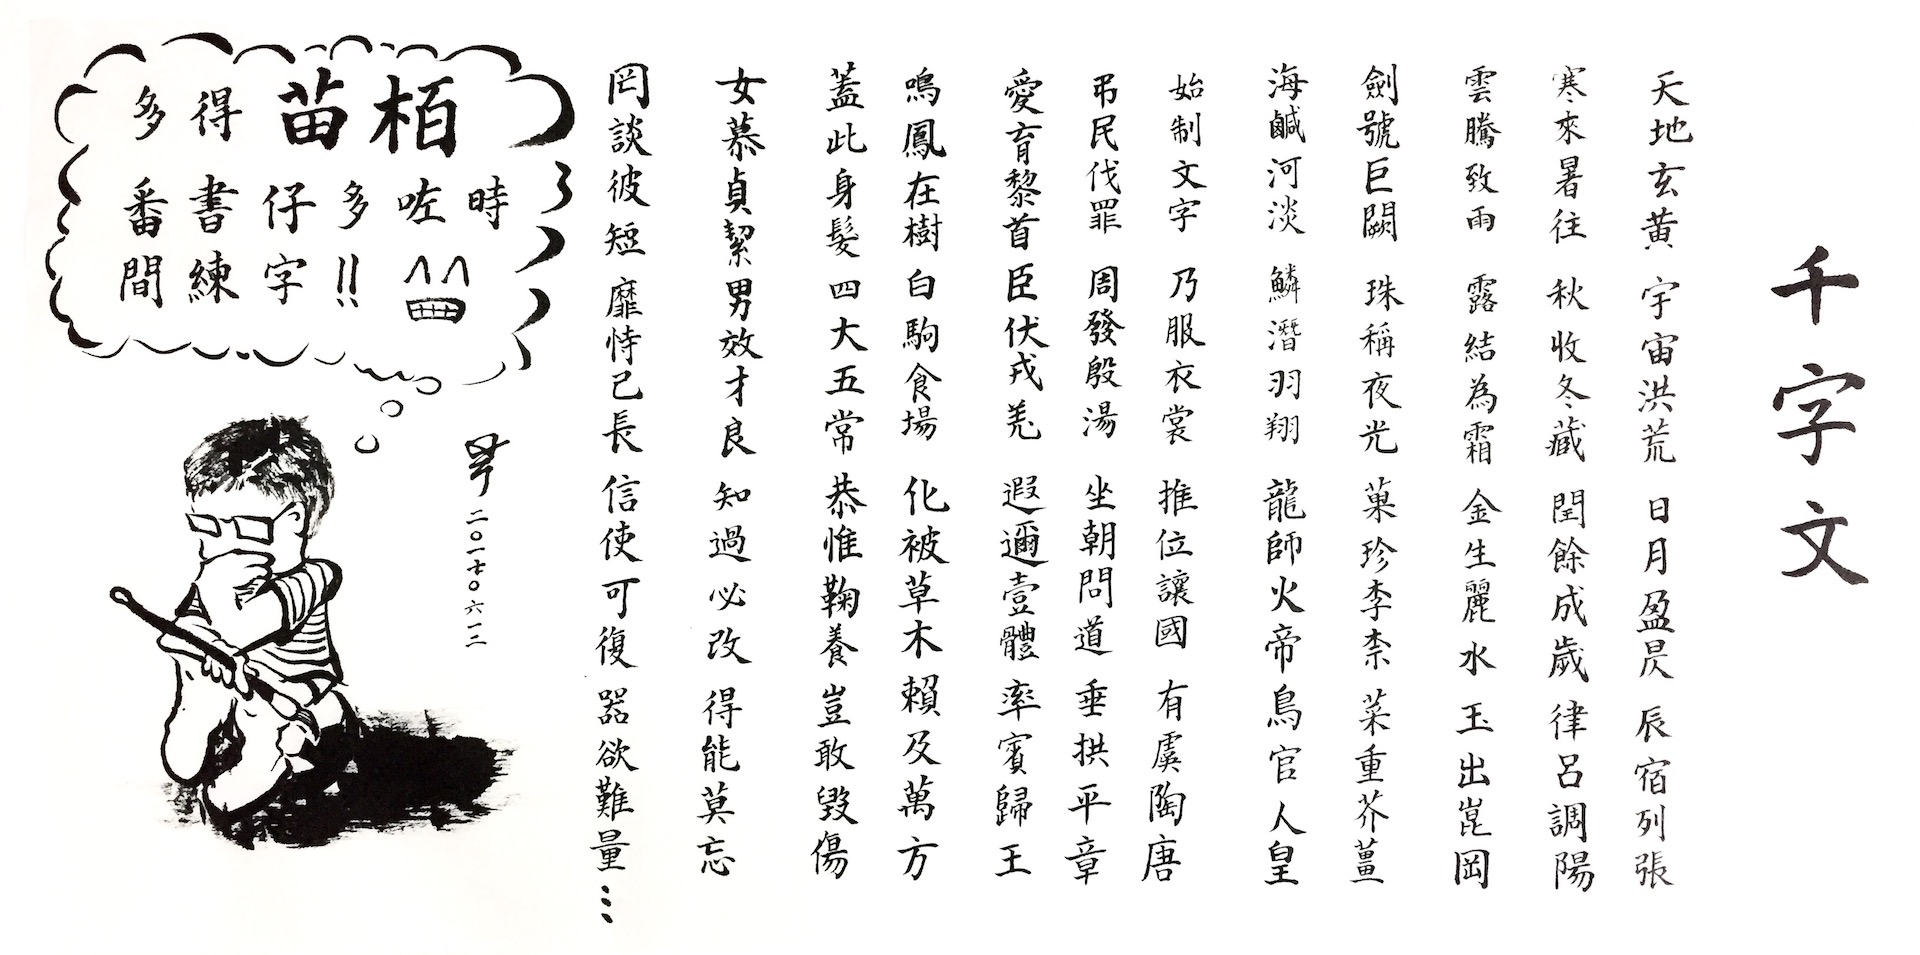 千字文
天地玄黃 宇宙洪荒 日月盈昃 辰宿列張
寒來暑往 秋收冬藏 閏餘成歲 律呂調陽
雲騰致雨 露結為霜 金生麗水 玉出崑岡
劍號巨闕 珠稱夜光 菓珍李柰 菜重芥薑
海鹹河淡 鱗潛羽翔 龍師火帝 鳥官人皇
始制文字 乃服衣裳 推位讓國 有虞陶唐
弔民伐罪 周發殷湯 坐朝問道 垂拱平章
愛育黎首 臣伏戎羌 遐邇壹體 率賓歸王
鳴鳳在樹 白駒食場 化被草木 賴及萬方
蓋此身髮 四大五常 恭惟鞠養 豈敢毀傷
女慕貞絜 男效才良 知過必改 得能莫忘
罔談彼短 靡恃己長 信使可復 器欲難量…
多得苗栢
番書仔多咗時
間練字!!
二〇一七〇六一二